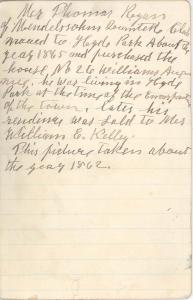 Mr Thomas Ryan
of Mendelssohn Quintette Club
moved to Hyde Park About the
year 1865 and purchased the
house, No 26 Williams Avenue
he was living in Hyde
Park at the time of the
of the town, later his
residence was sold to Mrs
William E. Kelley.
This picture taken about
the year 1862.